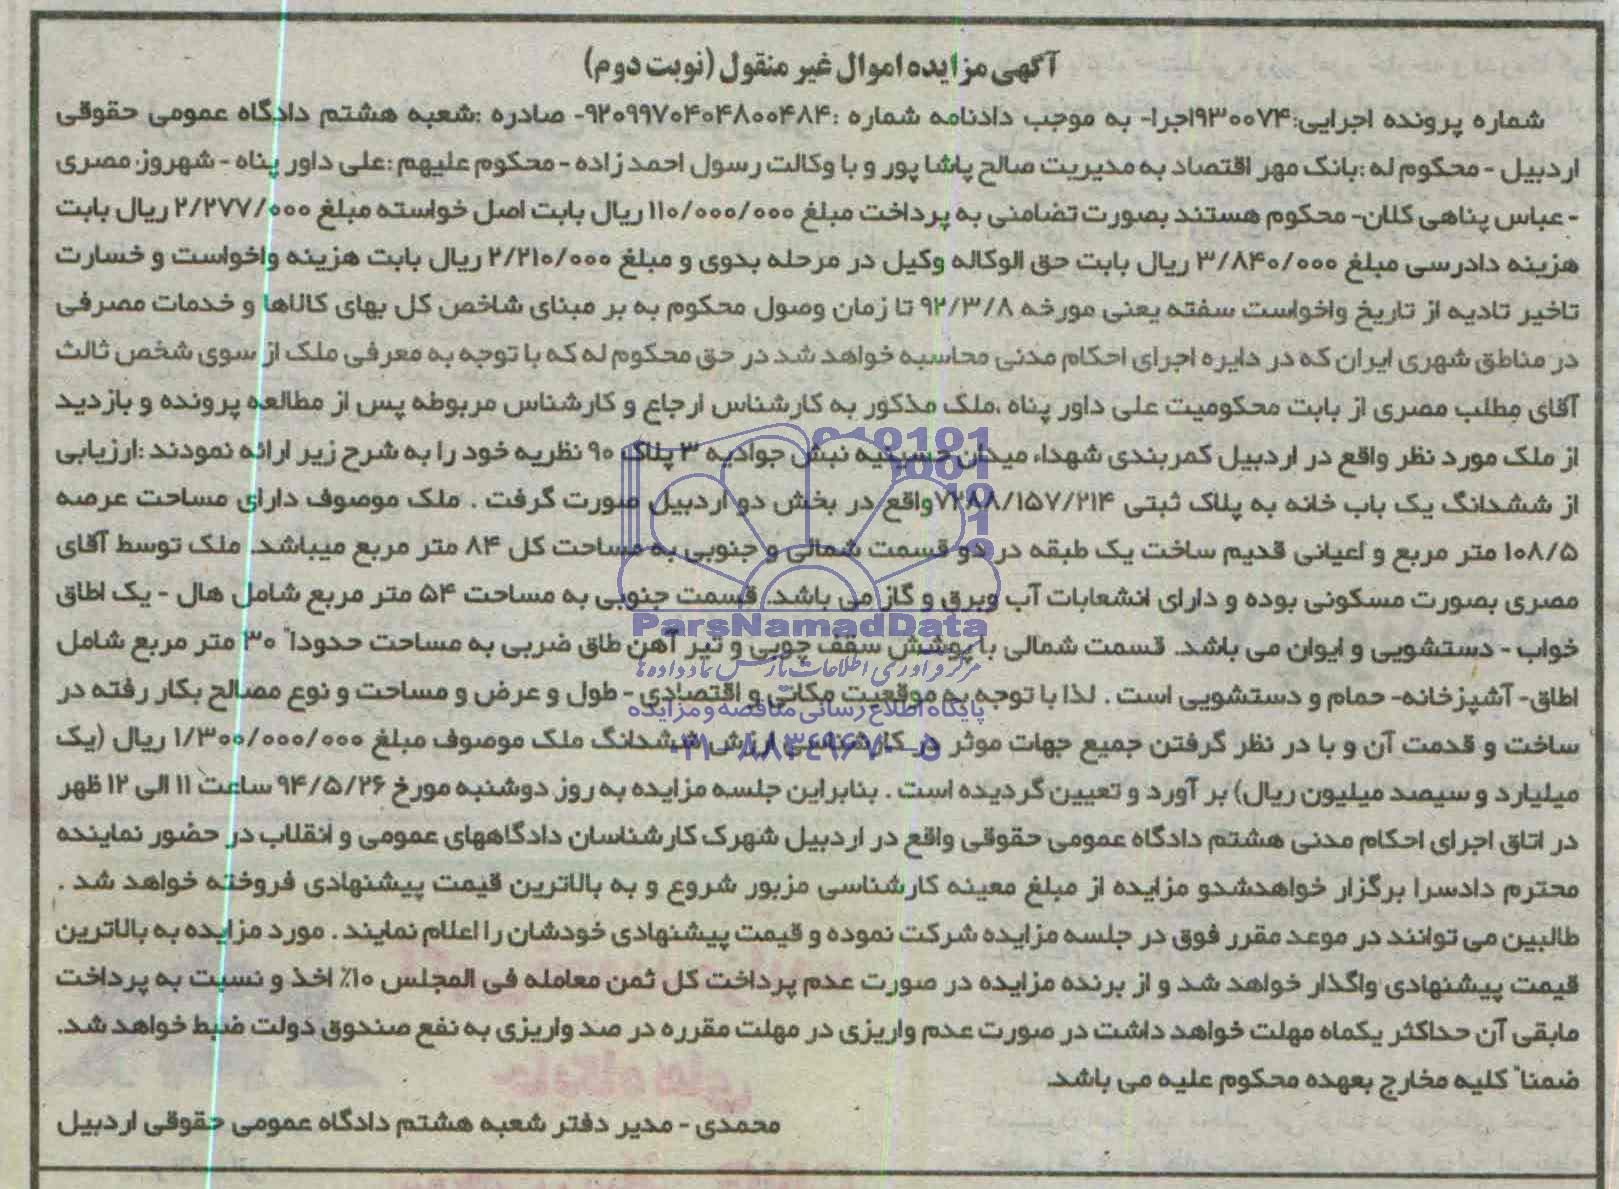 آگهی مزایده اموال غیر منقول (نوبت دوم)
شماره پرونده اجرایی:۹۳۰۰۷۴اجرا- به موجب دادنامه شماره :۹۲۰۹۹۷۰۴۰۴۸۰۰۴۸۴- صادره :شعبه هشتم دادگاه عمومی حقوقی
اردبیل - محکوم له :بانک مهر اقتصاد به مدیریت صالح پاشا پور و با وکالت رسول احمد زاده - محکوم علیهم :علی داور پناه - شهروز مصری
- عباس پناهی کلان- محکوم هستند بصورت تضامنی به پرداخت مبلغ ۱۱۰/۰۰۰/۰۰۰ ریال بابت اصل خواسته مبلغ ۲/۲۷۷/۰۰۰ ریال بابت
هزینه دادرسی مبلغ ۳/۸۴۰/۰۰۰ ریال بابت حق الوکاله وکیل در مرحله بدوی و مبلغ ۲/۲۱۰/۰۰۰ ریال بابت هزینه واخواست و خسارت
تاخیر تادیه از تاریخ واخواست سفته یعنی مورخه ۹۲/۳/۸ تا زمان وصول محکوم به بر مبنای شاخص کل بهای کالاها و خدمات مصرفی
در مناطق شهری ایران که در دایره اجرای احکام مدنی محاسبه خواهد شد در حق محکوم له که با توجه به معرفی ملک از سوی شخص ثالث
آقای مطلب مصری از بابت محکومیت علی داور پناه ،ملک مذکور به کارشناس ارجاع و کارشناس مربوطه پس از مطالعه پرونده و بازدید
از ملک مورد نظر واقع در اردبیل کمربندی شهداء میدان حسینیه نبش جوادیه ۳ پلاک ۹۰ نظریه خود را به شرح زیر ارائه نمودند :ارزیابی
از ششدانگ یک باب خانه به پلاک ثبتی ۷۲۸۸/۱۵۷/۲۱۴واقع در بخش دو اردبیل صورت گرفت . ملک موصوف دارای مساحت عرصه
۱۰۸/۵ متر مربع و اعیانی قدیم ساخت یک طبقه در دو قسمت شمالی و جنوبی به مساحت کل ۸۴ متر مربع میباشد. ملک توسط آقای
مصری بصورت مسکونی بوده و دارای انشعابات آب وبرق و گاز می باشد. قسمت جنوبی به مساحت ۵۴ متر مربع شامل هال - یک اطاق
خواب - دستشویی و ایوان می باشد. قسمت شمالی با پوشش سقف چوبی و تیر آهن طاق ضربی به مساحت حدودا" ۳۰ متر مربع شامل
اطاق- آشپزخانه- حمام و دستشویی است . لذا با توجه به موقعیت مکانی و اقتصادی - طول و عرض و مساحت و نوع مصالح بکار رفته در
ساخت و قدمت آن و با در نظر گرفتن جمیع جهات موثر در کارشناسی ارزش ششدانگ ملک موصوف مبلغ ۱/۳۰۰/۰۰۰/۰۰۰ ریال (یک
میلیارد و سیصد میلیون ریال) بر آورد و تعیین گردیده است . بنابراین جلسه مزایده به روز دوشنبه مورخ ۹۴/۵/۲۶ ساعت ۱۱ الی ۱۲ ظهر
در اتاق اجرای احکام مدنی هشتم دادگاه عمومی حقوقی واقع در اردبیل شهرک کارشناسان دادگاههای عمومی و انقلاب در حضور نماینده
محترم دادسرا برگزار خواهدشدو مزایده از مبلغ معینه کارشناسی مزبور شروع و به بالاترین قیمت پیشنهادی فروخته خواهد شد .
طالبین می توانند در موعد مقرر فوق در جلسه مزایده شرکت نموده و قیمت پیشنهادی خودشان را اعلام نمایند . مورد مزایده به بالاترین
قیمت پیشنهادی واگذار خواهد شد و از برنده مزایده در صورت عدم پرداخت کل ثمن معامله فی المجلس ۱۰٪ اخذ و نسبت به پرداخت
مابقی آن حداکثر یکماه مهلت خواهد داشت در صورت عدم واریزی در مهلت مقرره در صد واریزی به نفع صندوق دولت ضبط خواهد شد.
ضمنا" کلیه مخارج بعهده محکوم علیه می باشد.
محمدی - مدیر دفتر شعبه هشتم دادگاه عمومی حقوقی اردبیل
ParsNamadData
مرکز فرآوری اطلاعات پارس نماد داده ها
پایگاه اطلاع رسانی مناقصه و مزایده
۰۲۱-۸۸۳۴۹۶۷۰-۵